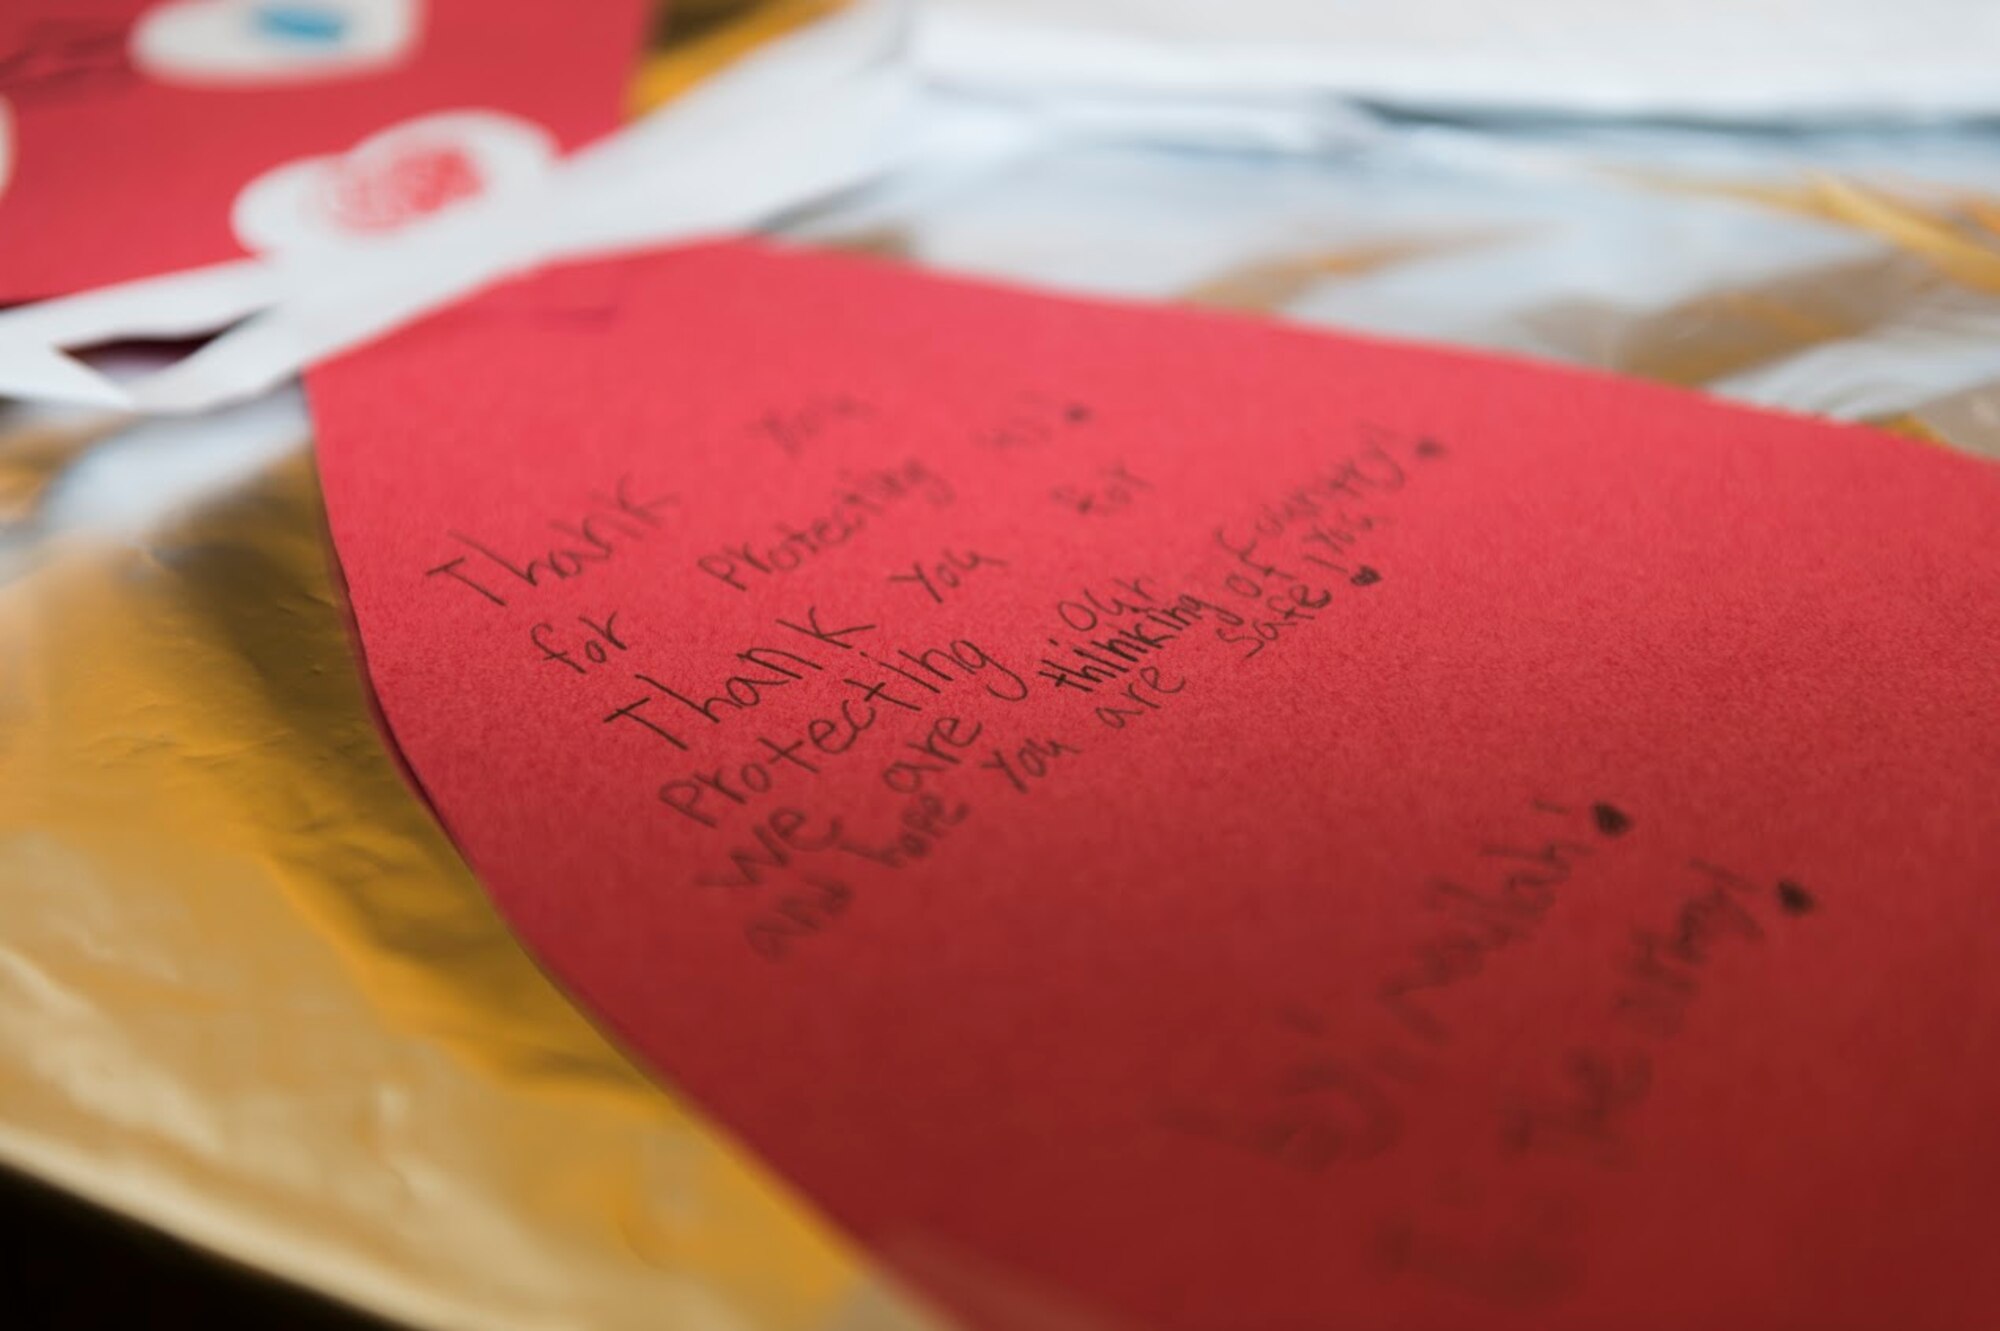 Thank You
for Protecting us!
Thank You for
Protecting our country!
We are thinking of you
and hope you are safe!
To The Army!